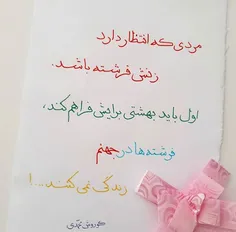 مردی که انتظار دارد
زنش فرشته باشد.
اول باید بهشتی برایش فراهم کند،
فرشته ها در جهنم
زندگی نمی کنند...!